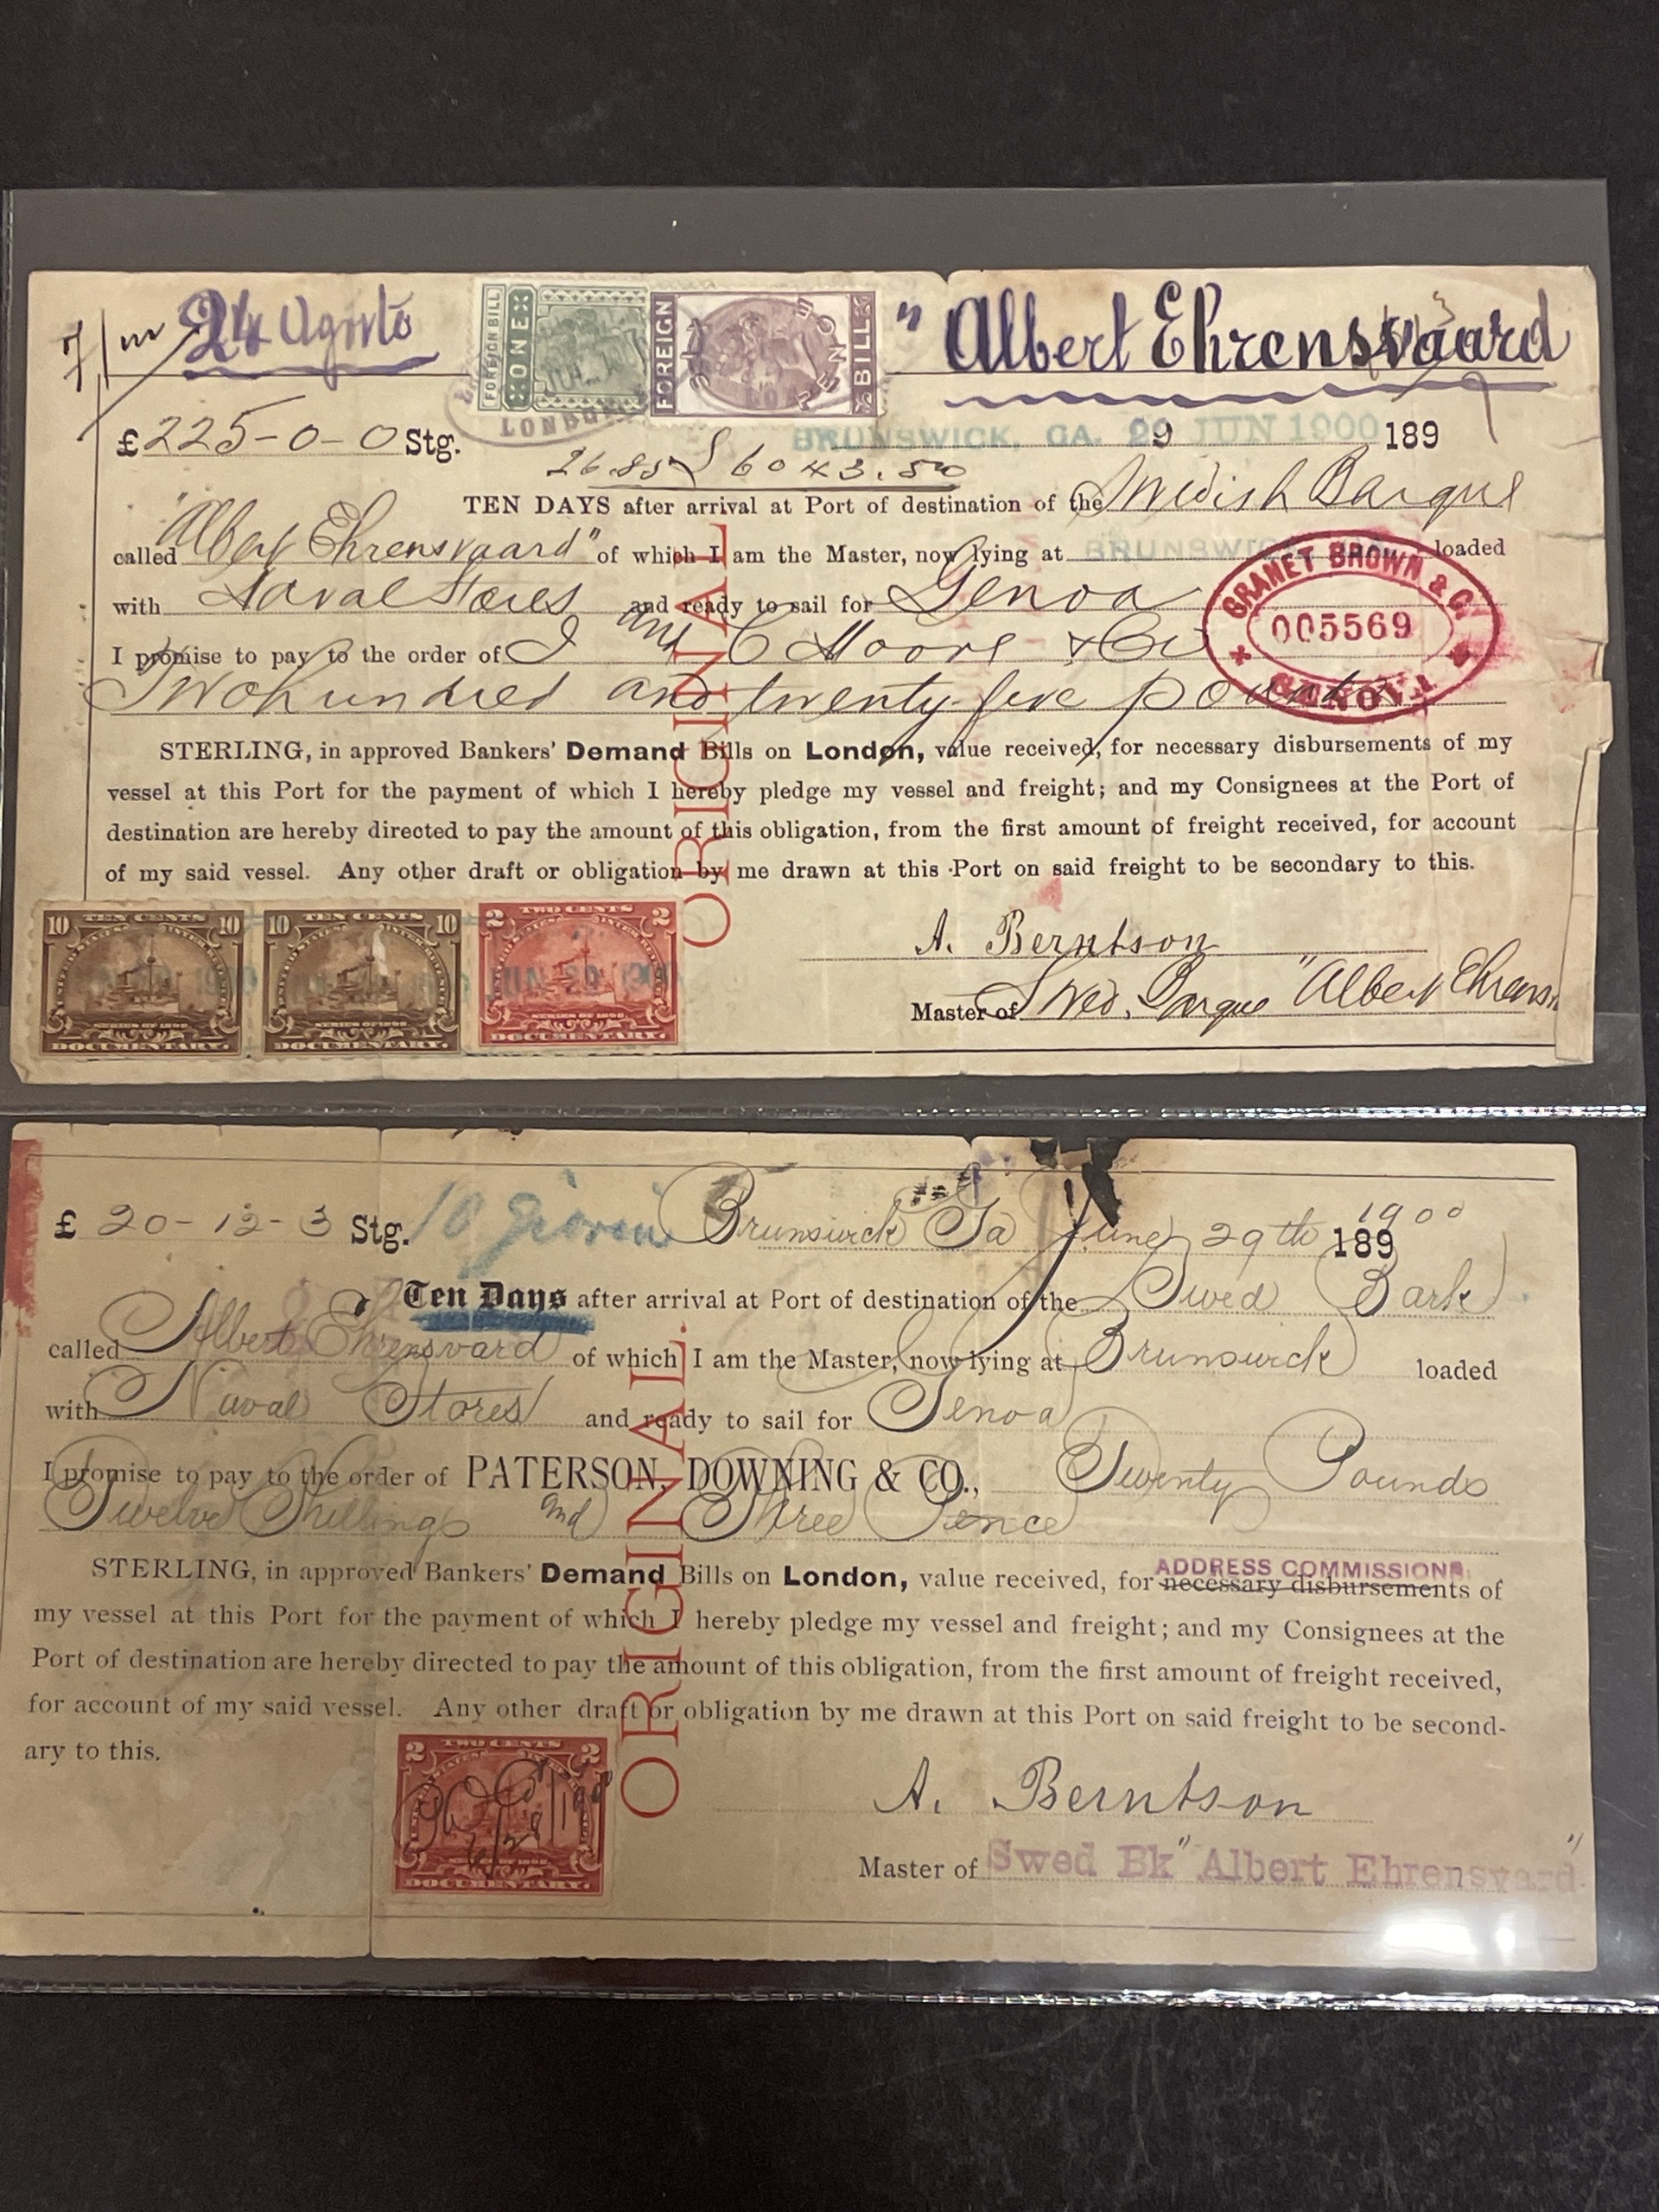 7/m 24 Agosto
FOREIGN BILL ONE
FOREIGN BILL
PEN
LONDON
"Albert Ehrensvaard
£ 225-0-0 Stg.
BRUNSWICK, GA. 29 JUN 1900 189
26.85 6043.50
TEN DAYS after arrival at Port of destination of the Swedish Barque
called "Albert Ehrensvaard" of which I am the Master, now lying at BRUNSWICK loaded
with Naval Stores and ready to sail for Genoa
I promise to pay to the order of J and C Moore & Co
Two hundred and twenty-five pounds
GRANET BROWN & C.
005569
GENOVA
STERLING, in approved Bankers' Demand Bills on London, value received, for necessary disbursements of my
vessel at this Port for the payment of which I hereby pledge my vessel and freight; and my Consignees at the Port of
destination are hereby directed to pay the amount of this obligation, from the first amount of freight received, for account
of my said vessel. Any other draft or obligation by me drawn at this Port on said freight to be secondary to this.
ORIGINAL
10 TEN CENTS 10
SERIES OF 1898
DOCUMENTARY.
10 TEN CENTS 10
SERIES OF 1898
DOCUMENTARY.
2 TWO CENTS 2
JUN 29 1900
SERIES OF 1898
DOCUMENTARY.
A. Berntson
Master of Swed. Barque "Albert Ehrens
£ 20-12-3 Stg. 10 giorni Brunswick Ga June 29th 1900 189
Ten Days after arrival at Port of destination of the Swed Bark
called Albert Ehrensvard of which I am the Master, now lying at Brunswick loaded
with Naval Stores and ready to sail for Genoa
I promise to pay to the order of PATERSON, DOWNING & CO., Twenty Pounds
Twelve Shillings and Three Pence
STERLING, in approved Bankers' Demand Bills on London, value received, for necessary disbursements of
ADDRESS COMMISSIONS
my vessel at this Port for the payment of which I hereby pledge my vessel and freight; and my Consignees at the
Port of destination are hereby directed to pay the amount of this obligation, from the first amount of freight received,
for account of my said vessel. Any other draft or obligation by me drawn at this Port on said freight to be second-
ary to this.
ORIGINAL.
2 TWO CENTS 2
DOCUMENTARY.
A. Berntson
Master of Swed Bk "Albert Ehrensvard"